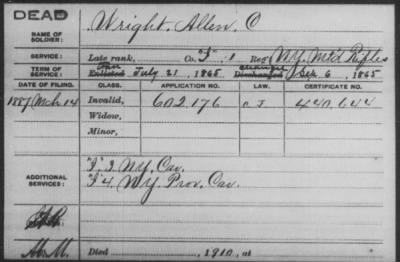 DEAD
NAME OF SOLDIER: Wright, Allen O
SERVICE: Late rank, Co. I, 1 Reg't N.Y. Mt'd Rifles
TERM OF SERVICE: Enlisted July 21, 1865 Discharged Sep. 6, 1865
DATE OF FILING. CLASS. APPLICATION NO. LAW. CERTIFICATE NO.
1887 Mch 14 Invalid, 602.176 440.644
Widow,
Minor,
ADDITIONAL SERVICES:
"I" 3 N.Y. Cav.
"I" 4 N.Y. Prov. Cav.
Died 1910, at